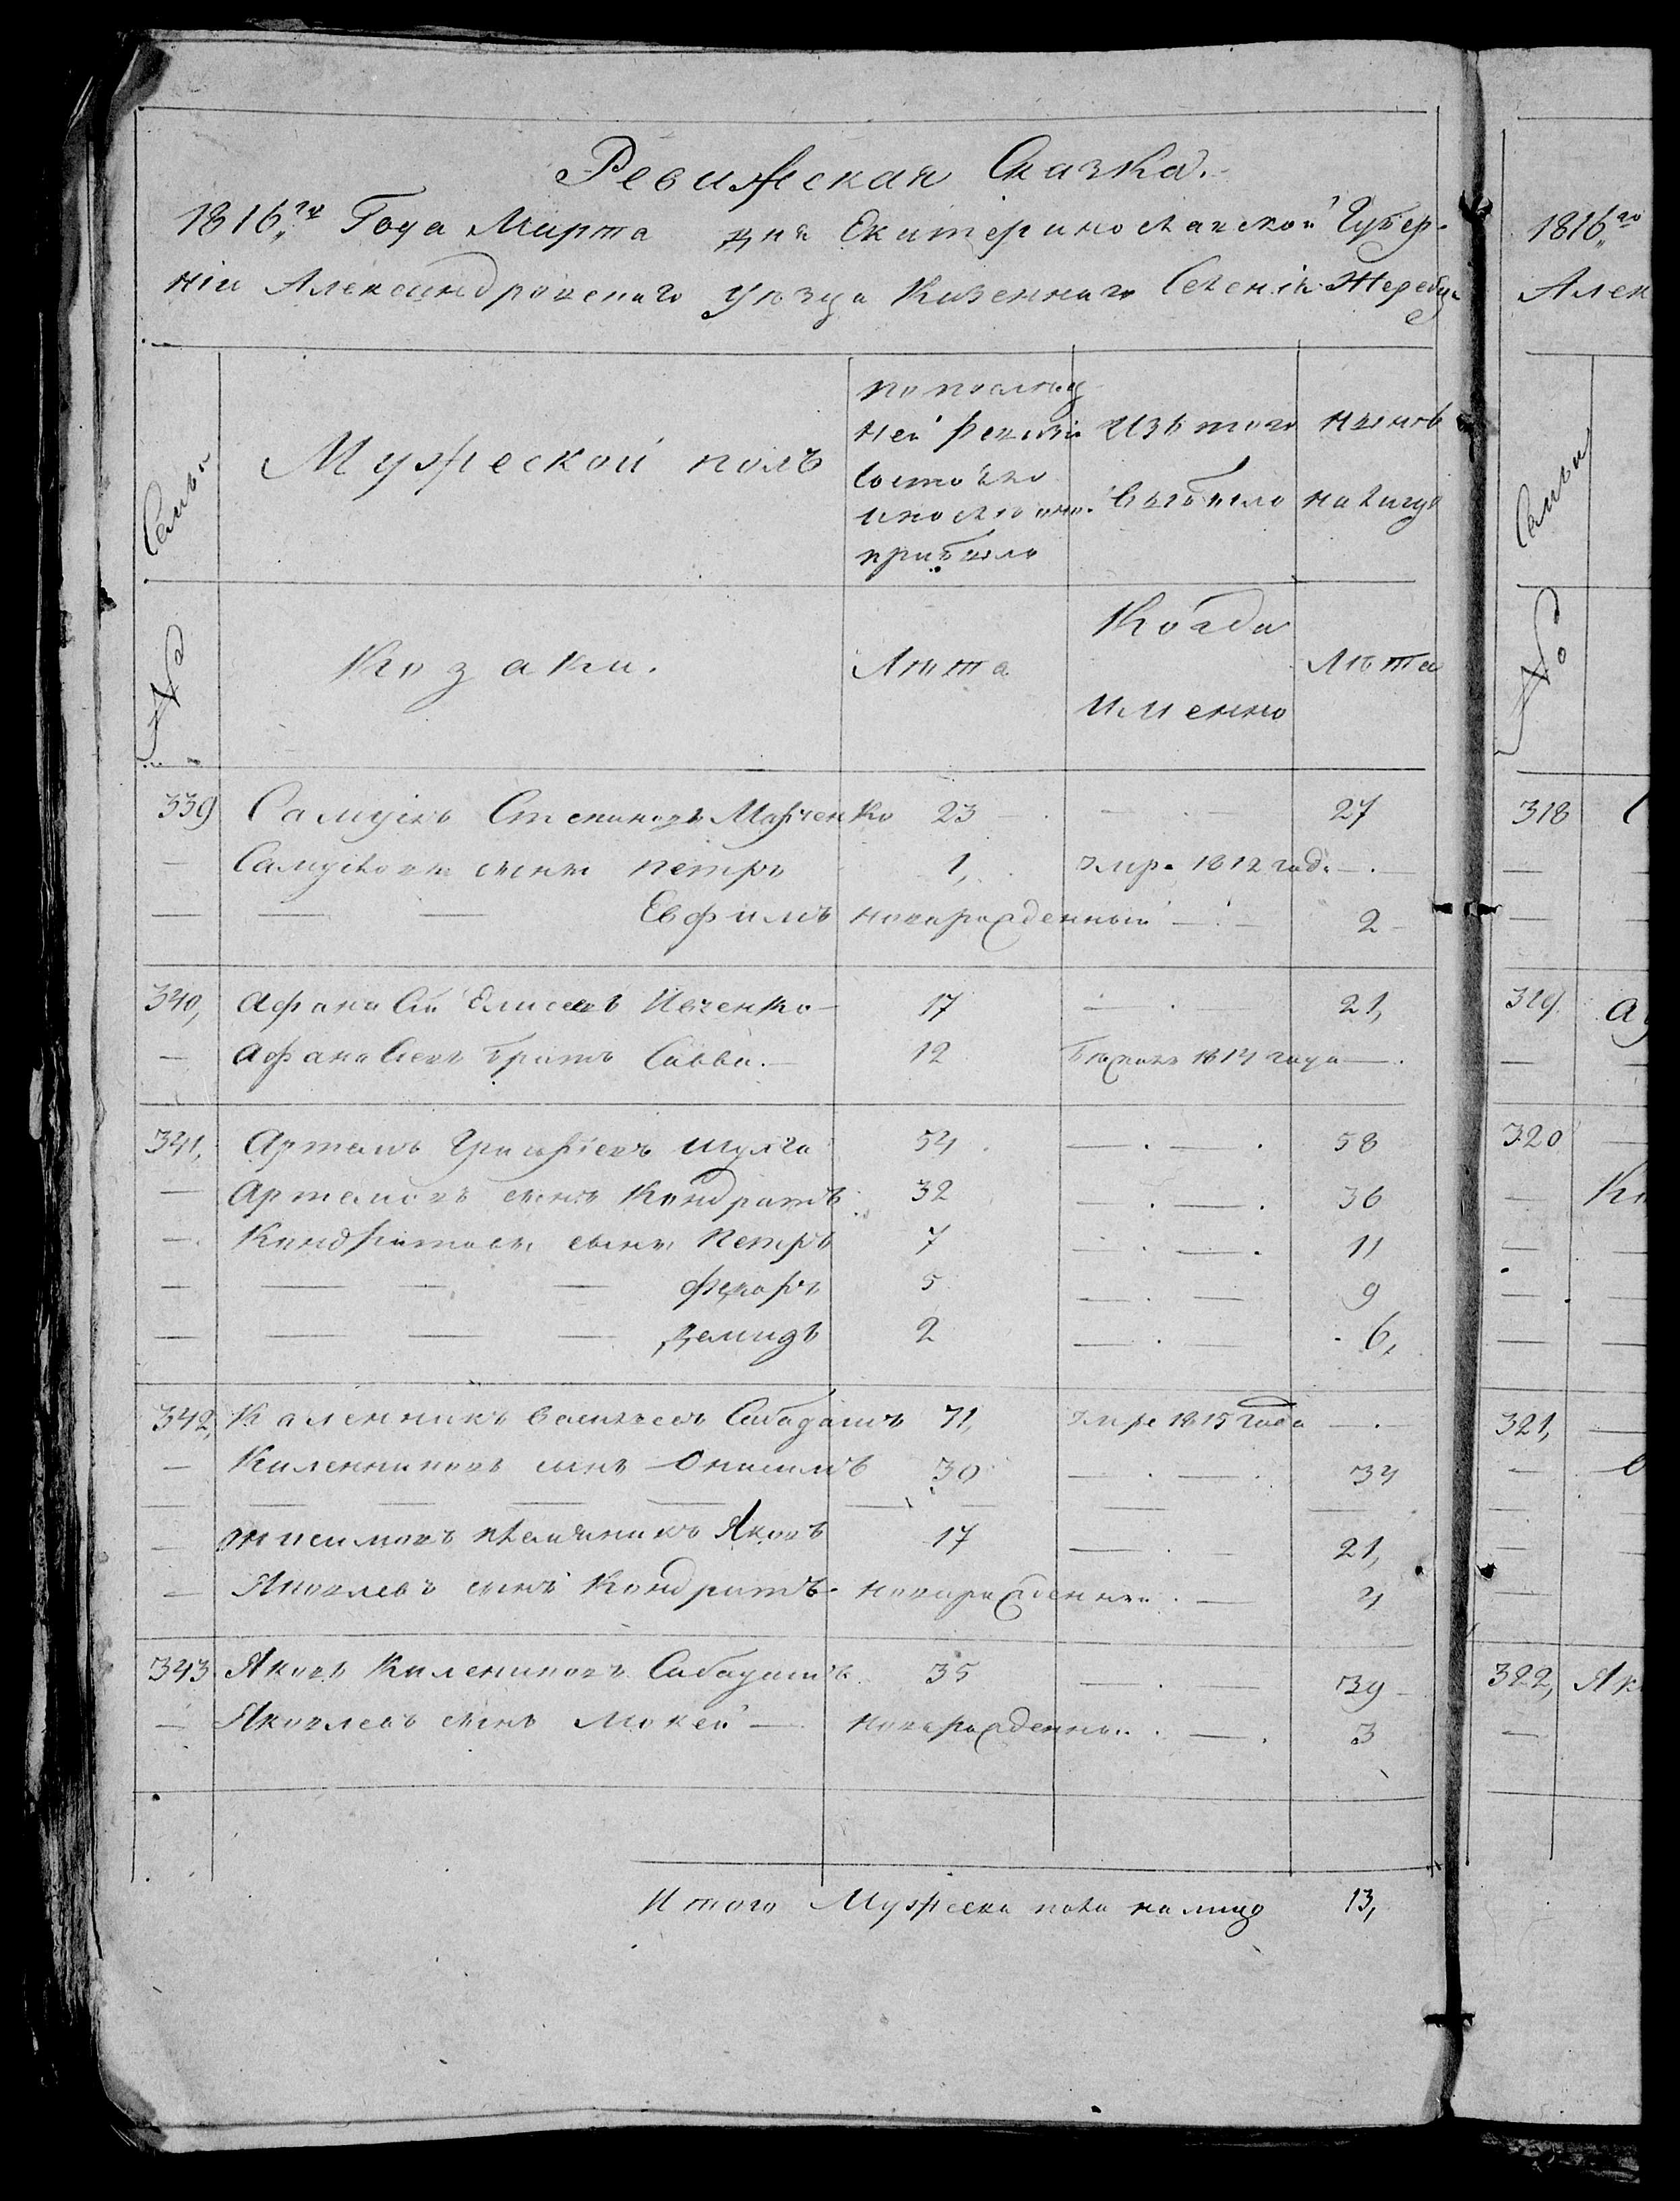 Ревижская Сказка.
1816го Года Марта дня Екатеринославской Губер-
нiи Александровскаго уѣзда Казеннаго Селенiя Жеребца
Семьи
Мужеской полъ
по послѣд
ней ревизiи
состояло
и после оно.
прибыло
Изъ того
выбыло
нынѣ
на лицо
№
Козаки.
Лѣта
Когда
именно
Лѣта
339 Самуилъ Степановъ Марченко 23 27
Самуйловъ сынъ Петръ 1, умре 1812 года
Евфимъ новорожденный 2
340, Афанасiй Елисеевъ Ивченко 17 21,
Афанасiевъ братъ Савва. 12 бѣжалъ 1814 года
341, Артемъ Григорiевъ Шулга 54 58
Артемовъ сынъ Кондратъ 32 36
Кондратовы сыны Петръ 7 11
Федоръ 5 9
Демидъ 2 6,
342, Каленникъ Васильевъ Сабадашъ 71, умре 1815 года
Каленниковъ сынъ Онисимъ 30 34
Онисимовъ племянникъ Яковъ 17 21,
Яковлевъ сынъ Кондратъ новорожденны 4
343 Яковъ Калениковъ Сабадашъ 35 39
Яковлевъ сынъ Мокей новорожденны 3
Итого Мужеска пола на лицо 13,
1816го
Алек
Семьи
№
318
319
320
321,
322, Як